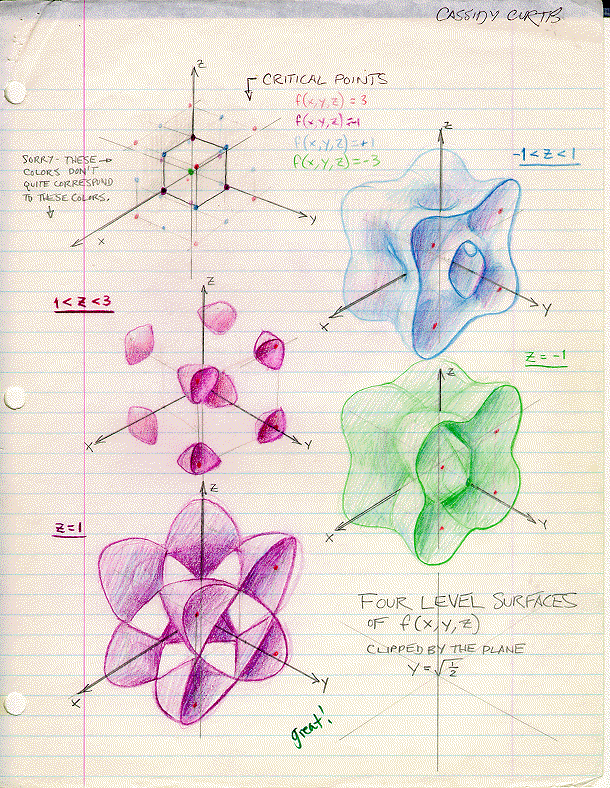 CASSIDY CURTIS
CRITICAL POINTS
f(x,y,z) = 3
f(x,y,z) = -1
f(x,y,z) = +1
f(x,y,z) = -3
SORRY - THESE →
COLORS DON'T
QUITE CORRESPOND
TO THESE COLORS.
z
x
y
-1 < z < 1
z
x
y
1 < z < 3
z
x
y
z = -1
z
x
y
z = 1
z
x
y
FOUR LEVEL SURFACES
OF f(x,y,z)
CLIPPED BY THE PLANE
y = √½
great!